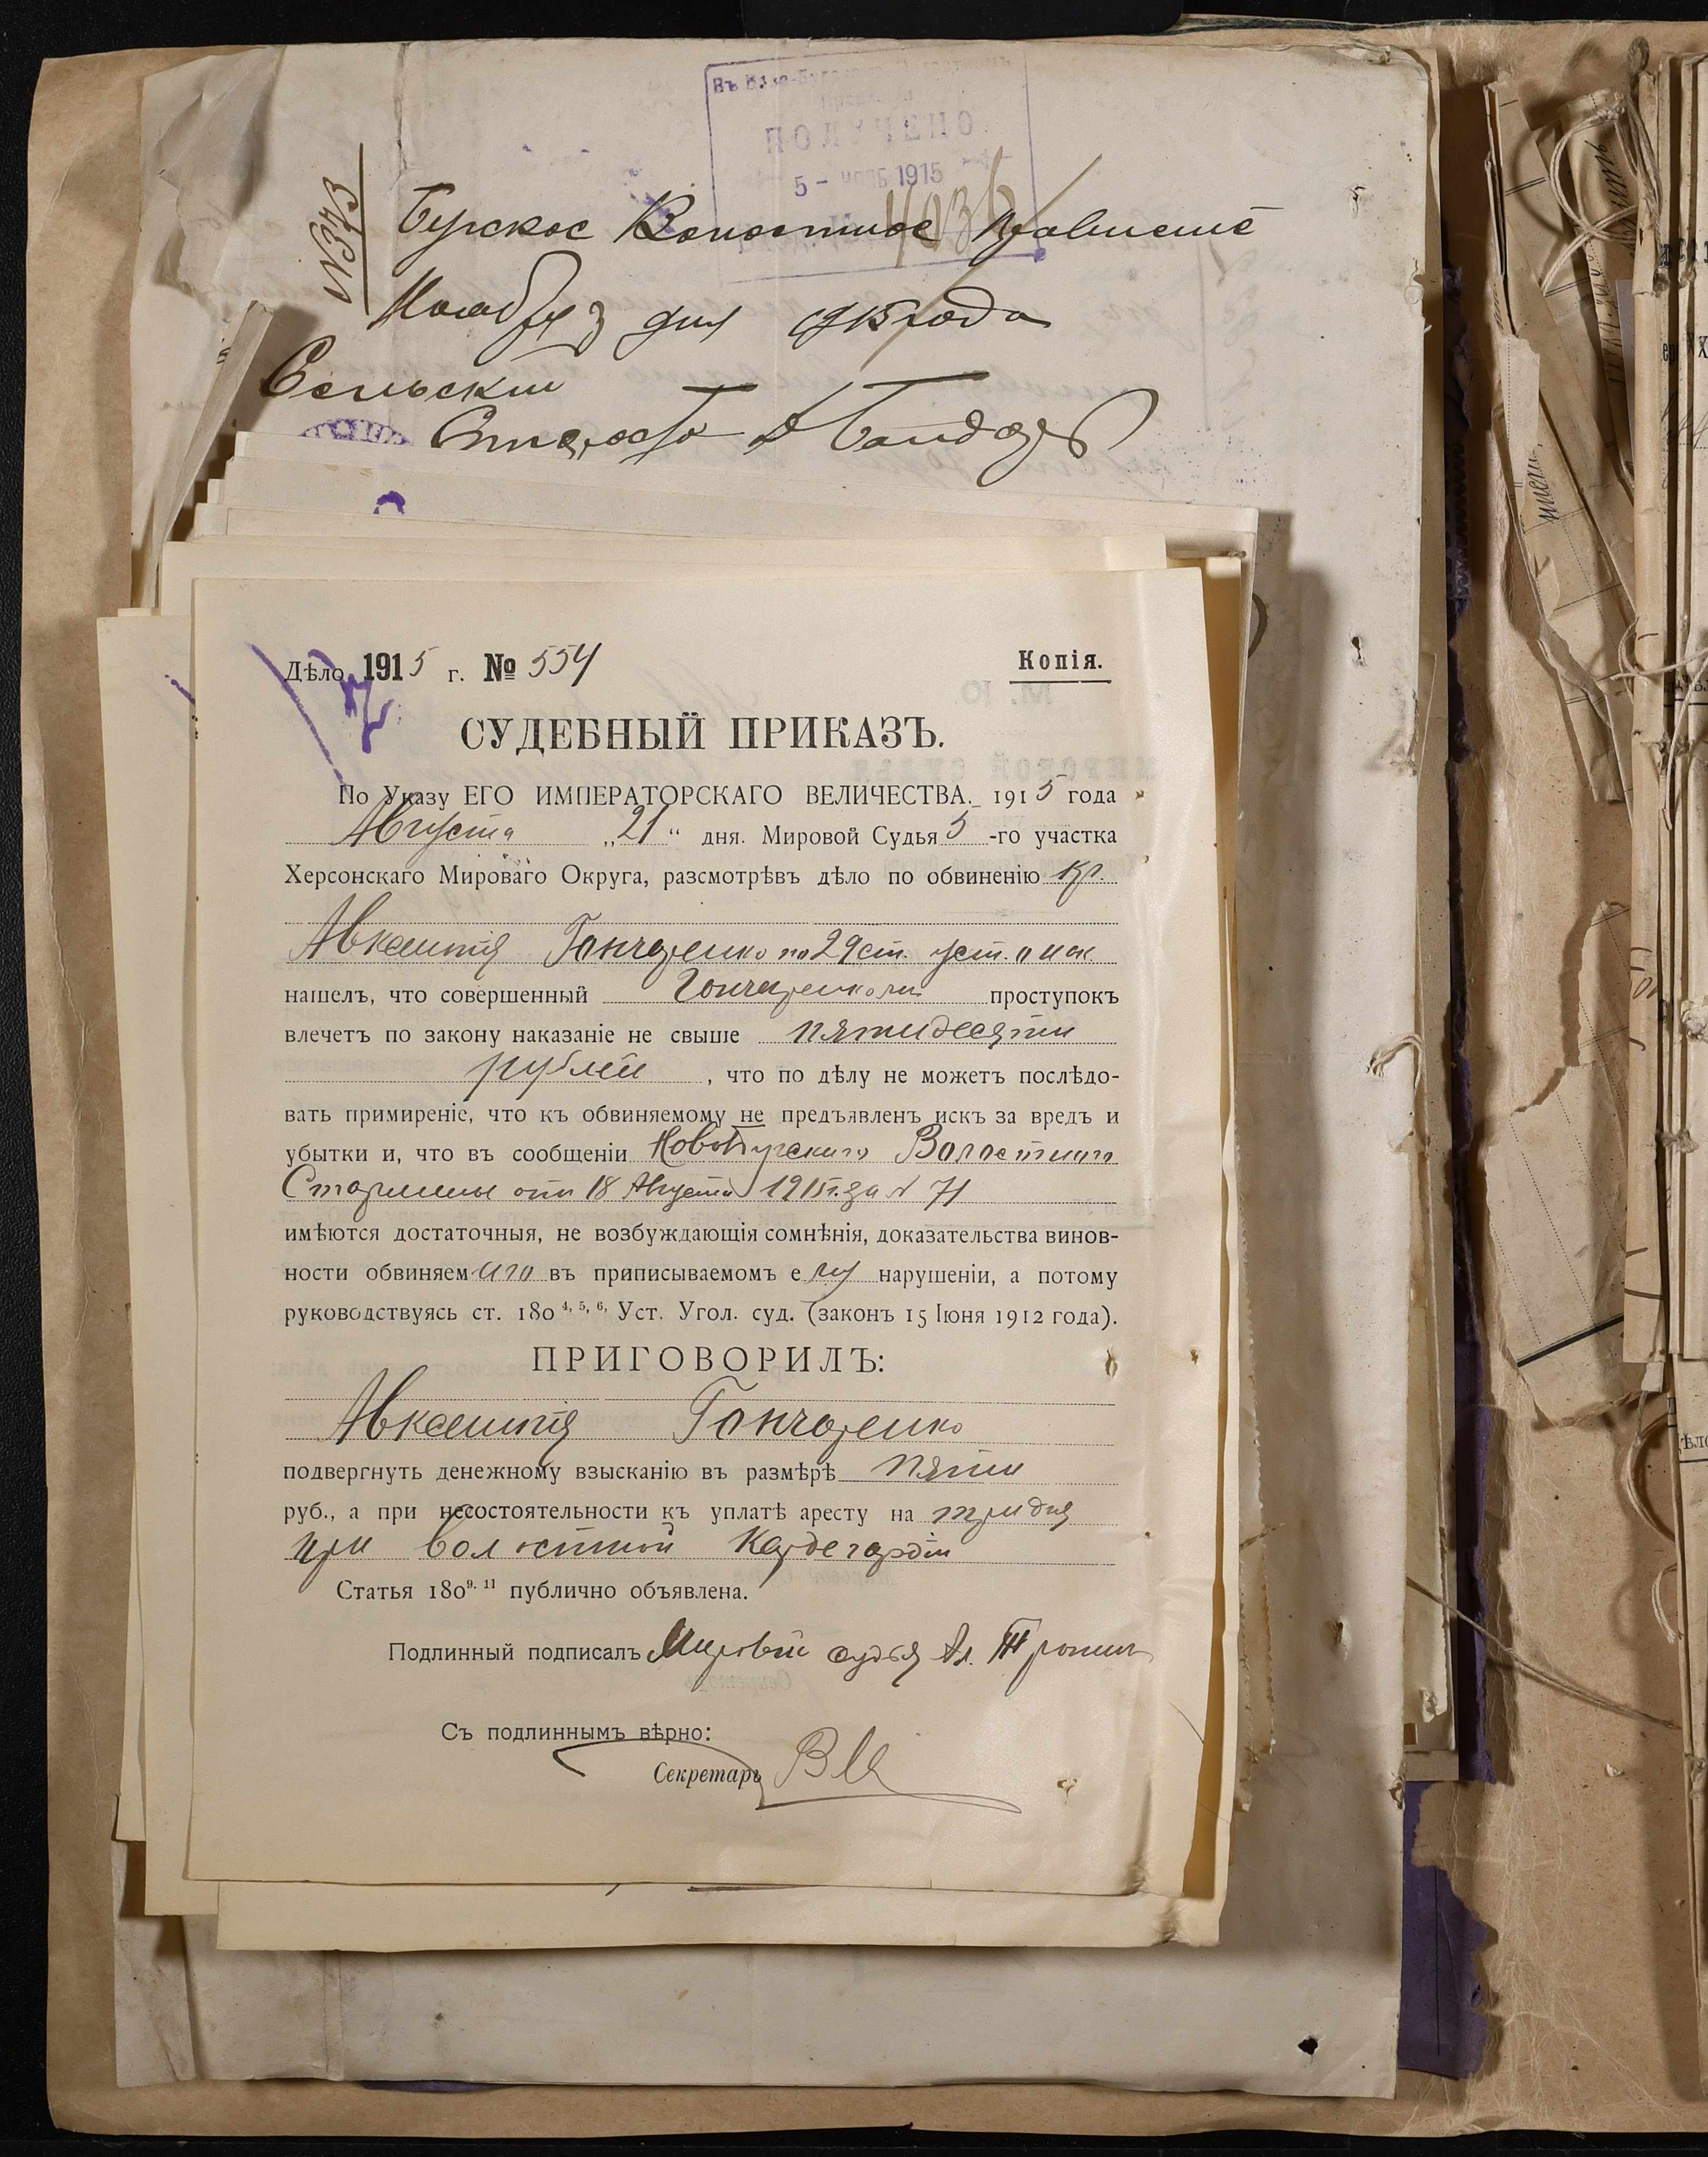 ПОЛУЧЕНО
5 - 1915
№373
Бугское Волостное Правление
Ноября 3 дня 1915 года
Сельский
Староста
Дѣло 1915 г. № 554
Копія.
СУДЕБНЫЙ ПРИКАЗЪ.
По Указу ЕГО ИМПЕРАТОРСКАГО ВЕЛИЧЕСТВА. 1915 года
Августа „21“ дня. Мировой Судья 5-го участка
Херсонскаго Мироваго Округа, разсмотрѣвъ дѣло по обвиненію кр.
Авксентія Гончаренко по 29 ст. уст. о нак.
нашелъ, что совершенный Гончаренкомъ проступокъ
влечетъ по закону наказаніе не свыше пятидесяти
рублей, что по дѣлу не можетъ послѣдо-
вать примиреніе, что къ обвиняемому не предъявленъ искъ за вредъ и
убытки и, что въ сообщеніи НовоБугскаго Волостного
Старшины отъ 18 Августа 1915 г. за № 71
имѣются достаточныя, не возбуждающія сомнѣнія, доказательства винов-
ности обвиняемаго въ приписываемомъ ему нарушеніи, а потому
руководствуясь ст. 180 4, 5, 6, Уст. Угол. суд. (законъ 15 Іюня 1912 года).
ПРИГОВОРИЛЪ:
Авксентія Гончаренко
подвергнуть денежному взысканію въ размѣрѣ пяти
руб., а при несостоятельности къ уплатѣ аресту на три дня
при волостной Кордегардіи
Статья 180 9. 11 публично объявлена.
Подлинный подписалъ Мировой судья Ал.
Съ подлиннымъ вѣрно:
Секретарь